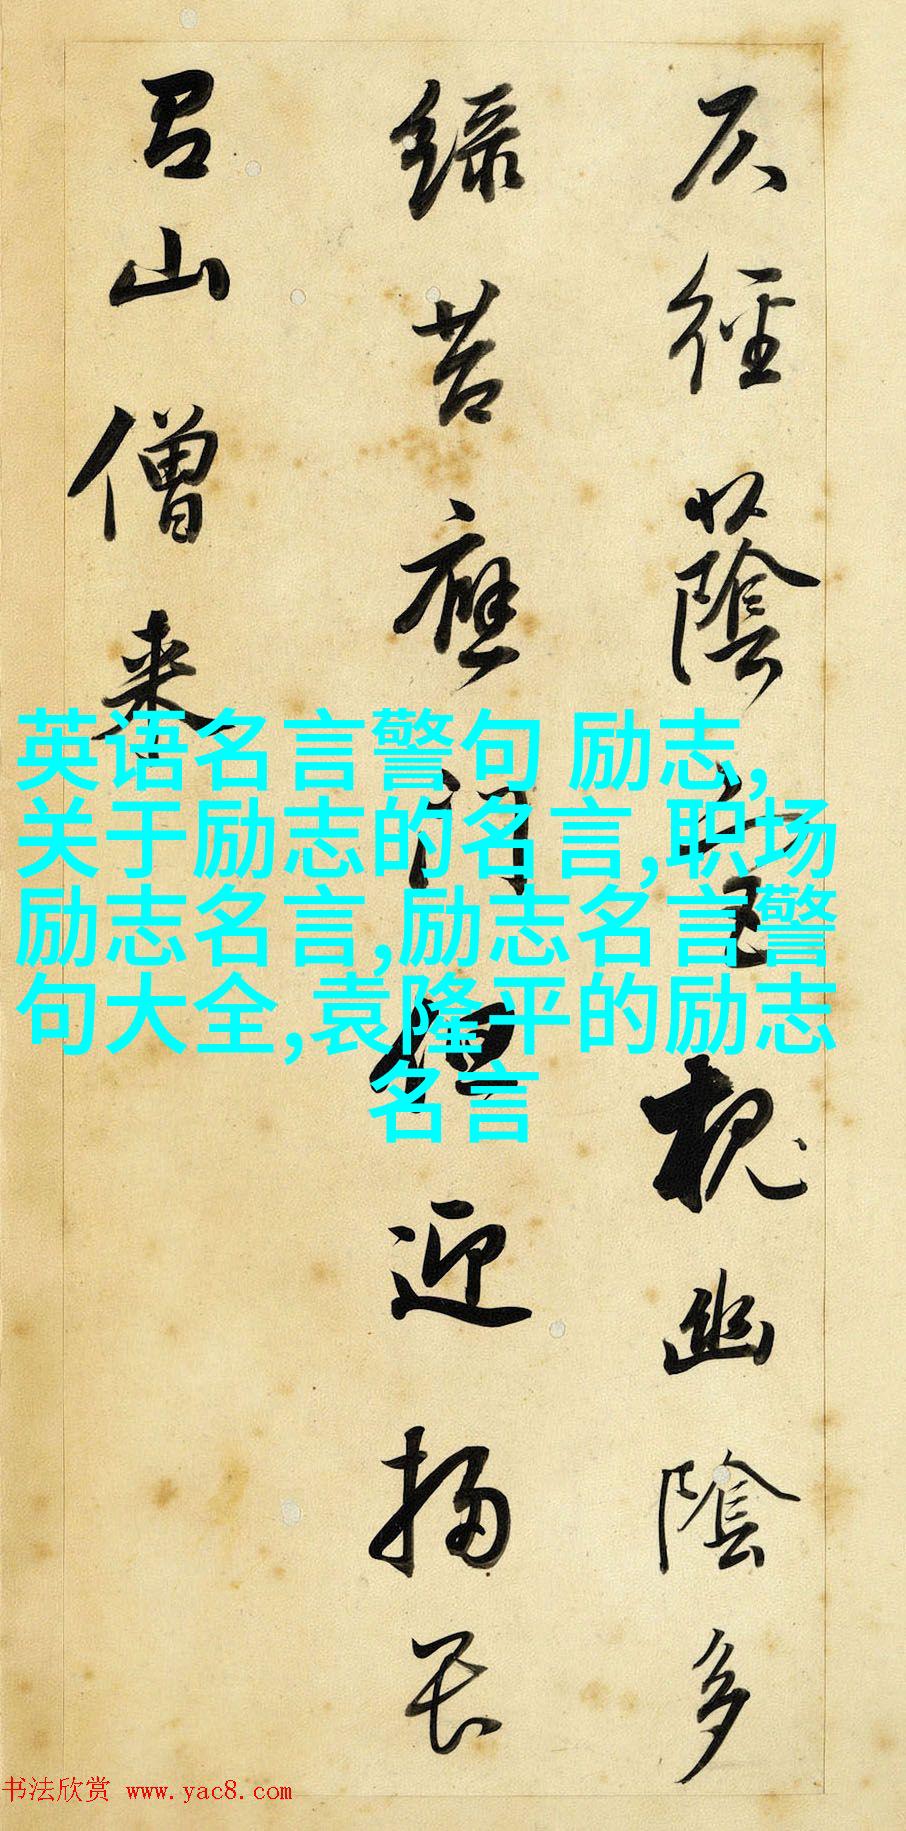 仄徑蔭宮槐幽陰多
綠苔應門但迎掃畏
有山僧来
英语名言警句 励志,
关于励志的名言,职场
励志名言,励志名言警
句大全,袁隆平的励志
名言
书法欣赏 www.yac8.com